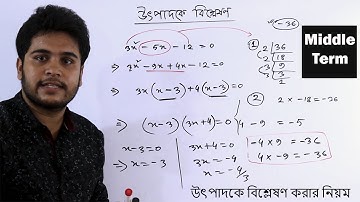 উৎপাদকে বিশ্লেষণ
-36
Middle
Term
3x² - 5x - 12 = 0
⇒ 3x² - 9x + 4x - 12 = 0
3x(x-3) + 4(x-3) = 0
⇒ (x-3) (3x+4) = 0
x-3=0
⇒ x = -3
3x+4=0
3x = -4
x = -4/3
1
2 36
2 18
3 9
3 3
2
2 x -18 = -36
4 - 9 = -5
-4 x 9 = -36
4 x -9 = -36
উৎপাদকে বিশ্লেষণ করার নিয়ম